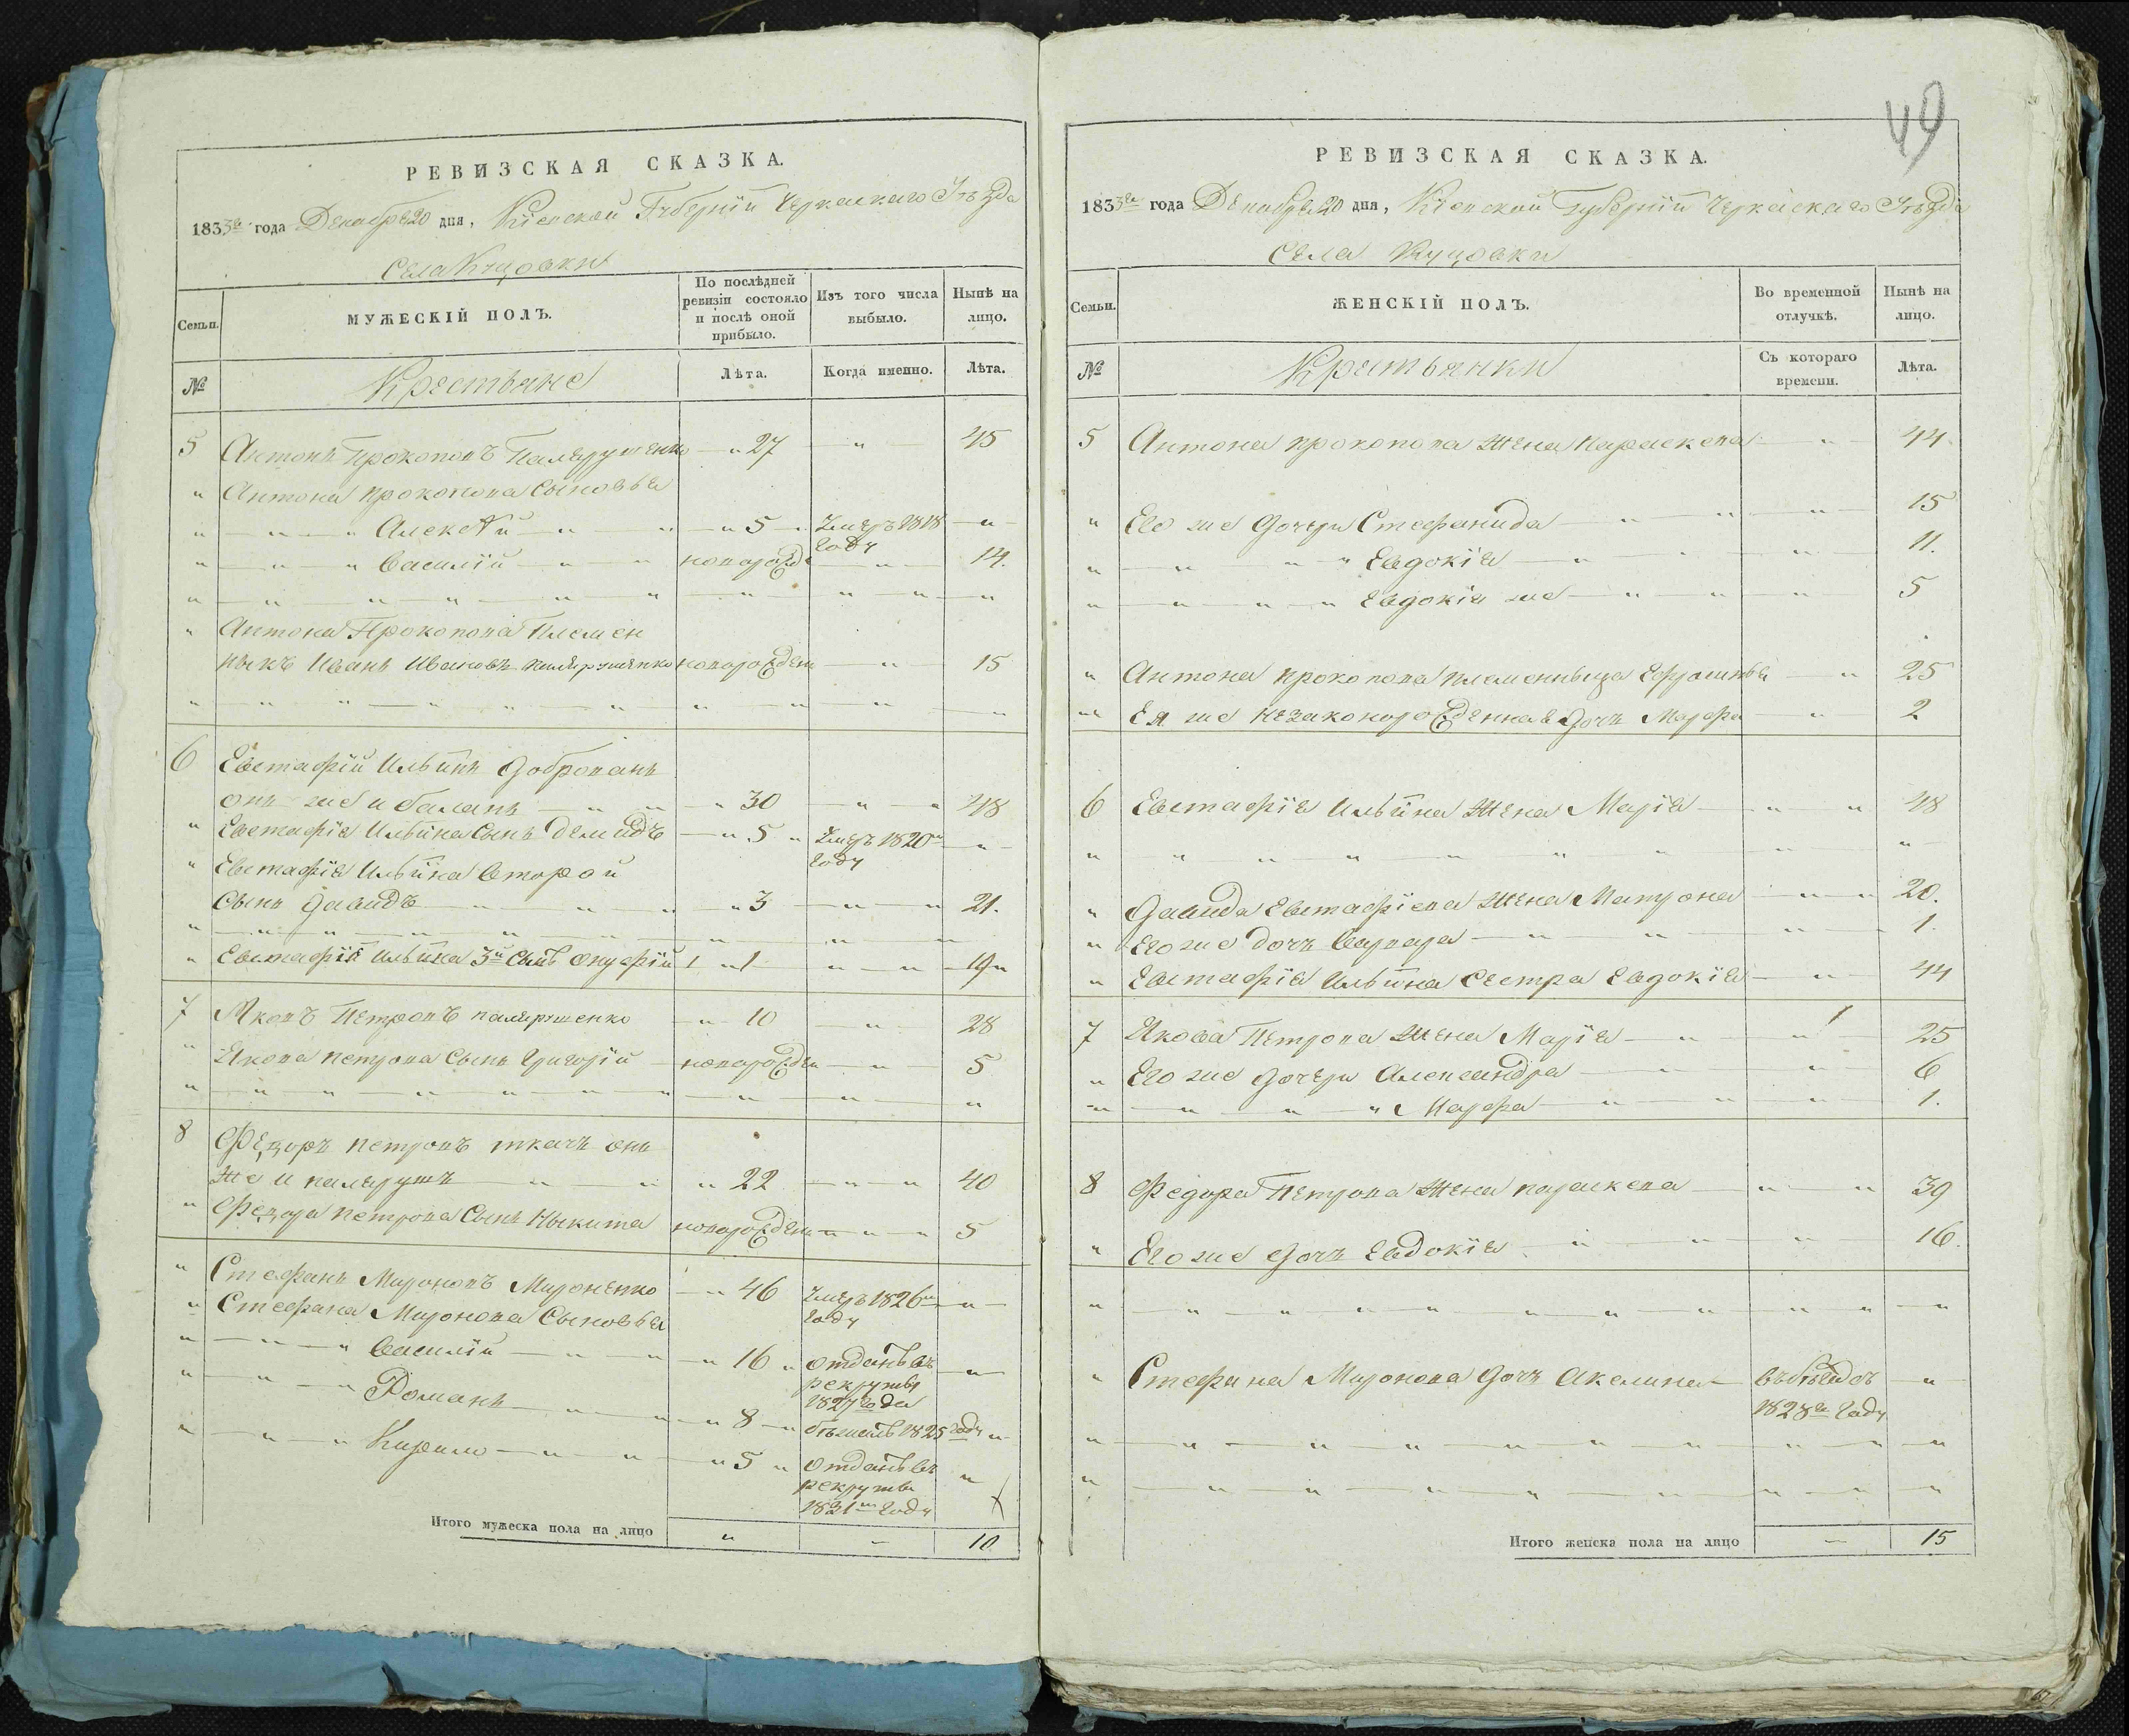 49
РЕВИЗСКАЯ СКАЗКА.
1833го года Декабря 20 дня, Кіевской Губерніи Черкаскаго Уѣзда
Села Куцовки
Семьи.
МУЖЕСКІЙ ПОЛЪ.
По послѣдней ревизіи состояло и послѣ оной прибыло.
Изъ того числа выбыло.
Нынѣ на лицо.
№
Крестьяне
Лѣта.
Когда именно.
Лѣта.
5 Антонъ Прокоповъ — " 27 — " — 45
" Антона Прокопова Сыновья
" — " — " Алексѣй — " — " — " 5 — " Умеръ 1818 — " —
году
" — " — " Василій — " — " новорожде — " — 14.
" — " — " — " — " — " — " — " — " — "
" Антона Прокопова Племен
ныкъ Иванъ Ивановъ новорожден — " — 15
" — " — " — " — " — " — " — " — " — "
6 Евстафій Ильинъ
онъ же и — " — " — " 30 — " — " 48
" Евстафія Ильина Сынъ Демидъ — " 5 " Умеръ 1820го — " —
году
" Евстафія Ильина Второй
Сынъ Давидъ — " — " — " " 3 — " — " 21.
" — " — " — " — " — " — " — " — "
" Евстафія Ильина 3й Сынъ Онуфрій 1 " 1 — " — " 19
7 Яковъ Петровъ — " 10 — " — 28
" Якова Петрова Сынъ Григорій — новорожден — " — 5
" — " — " — " — " — " — " — " — " — "
8 Федоръ Петровъ ткачъ онъ
же и — " — " " 22 — " — " 40
" Федора Петрова Сынъ Ныкита новорожден — " — " 5
" Стефанъ Мироновъ Мироненко — " 46 Умеръ 1826го — " —
году
" Стефана Миронова Сыновья
" — " — " Василій — " — " — " 16 " отданъ въ — " —
рекруты
1827 года
" — " — " Романъ — " — " — " 8 — " бѣжалъ 1825 году "
" — " — " Кирило — " — " — " 5 " отданъ въ "
рекруты
1831го году
Итого мужеска пола на лицо " — 10
РЕВИЗСКАЯ СКАЗКА.
1833го года Декабря 20 дня, Кіевской Губерніи Черкаскаго Уѣзда
Села Куцовки
Семьи.
ЖЕНСКІЙ ПОЛЪ.
Во временной отлучкѣ.
Нынѣ на лицо.
№
Крестьянки
Съ котораго времени.
Лѣта.
5 Антона Прокопова Жена Параскева — " — 44.
" Его же дочери Стефанида — " — " — " — 15
" — " — " — " Евдокія — " — " — " — 11.
" — " — " — " Евдокія же — " — " — " 5
" Антона Прокопова племенныца Ефросинья — " 25
" Ея же незаконорожденная дочь Марфа — " 2
6 Евстафія Ильина Жена Марія — " — " 48
" — " — " — " — " — " — " — " — "
" Давида Евстафіева Жена Матрона — " — " 20.
" Его же дочь Варвара — " — " — " — 1.
" Евстафія Ильина Сестра Евдокія — " — 44
7 Якова Петрова Жена Марія — " — " — 25
" Его же дочери Александра — " — " — 6
" — " — " — " Марфа — " — " — " — 1.
8 Федора Петрова Жена Параскева — " — " 39
" Его же дочь Евдокія — " — " — " 16.
" — " — " — " — " — " — " — " — " — "
" Стефана Миронова дочь Акелина — — " —
1828го году
" — " — " — " — " — " — " — " — " — "
" — " — " — " — " — " — " — " — " — "
Итого женска пола на лицо — 15